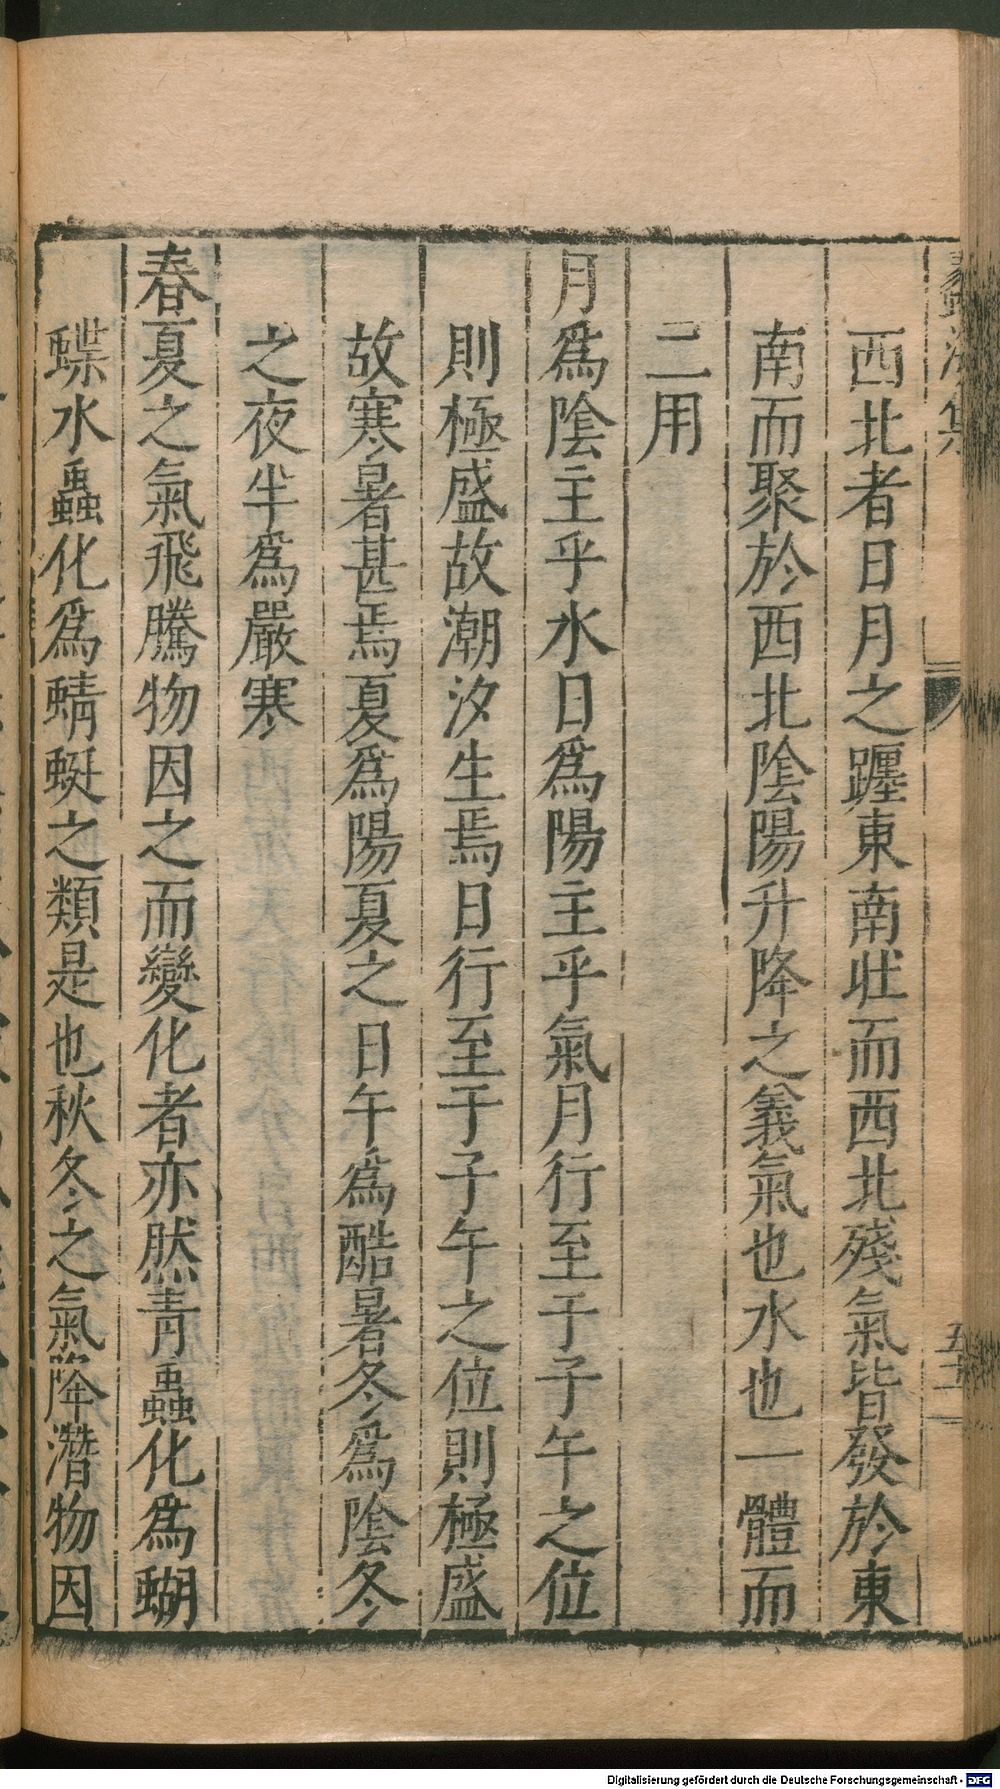 蠡海集
五十一
西北者日月之躔東南壯而西北殘氣皆發於東
南而聚於西北陰陽升降之義氣也水也一體而
二用
月爲陰主乎水日爲陽主乎氣月行至于子午之位
則極盛故潮汐生焉日行至于子午之位則極盛
故寒暑甚焉夏爲陽夏之日午爲酷暑冬爲陰冬
之夜半爲嚴寒
春夏之氣飛騰物因之而變化者亦然青蟲化爲蝴
蝶水蟲化爲蜻蜓之類是也秋冬之氣降潛物因
Digitalisierung gefördert durch die Deutsche Forschungsgemeinschaft - DFG